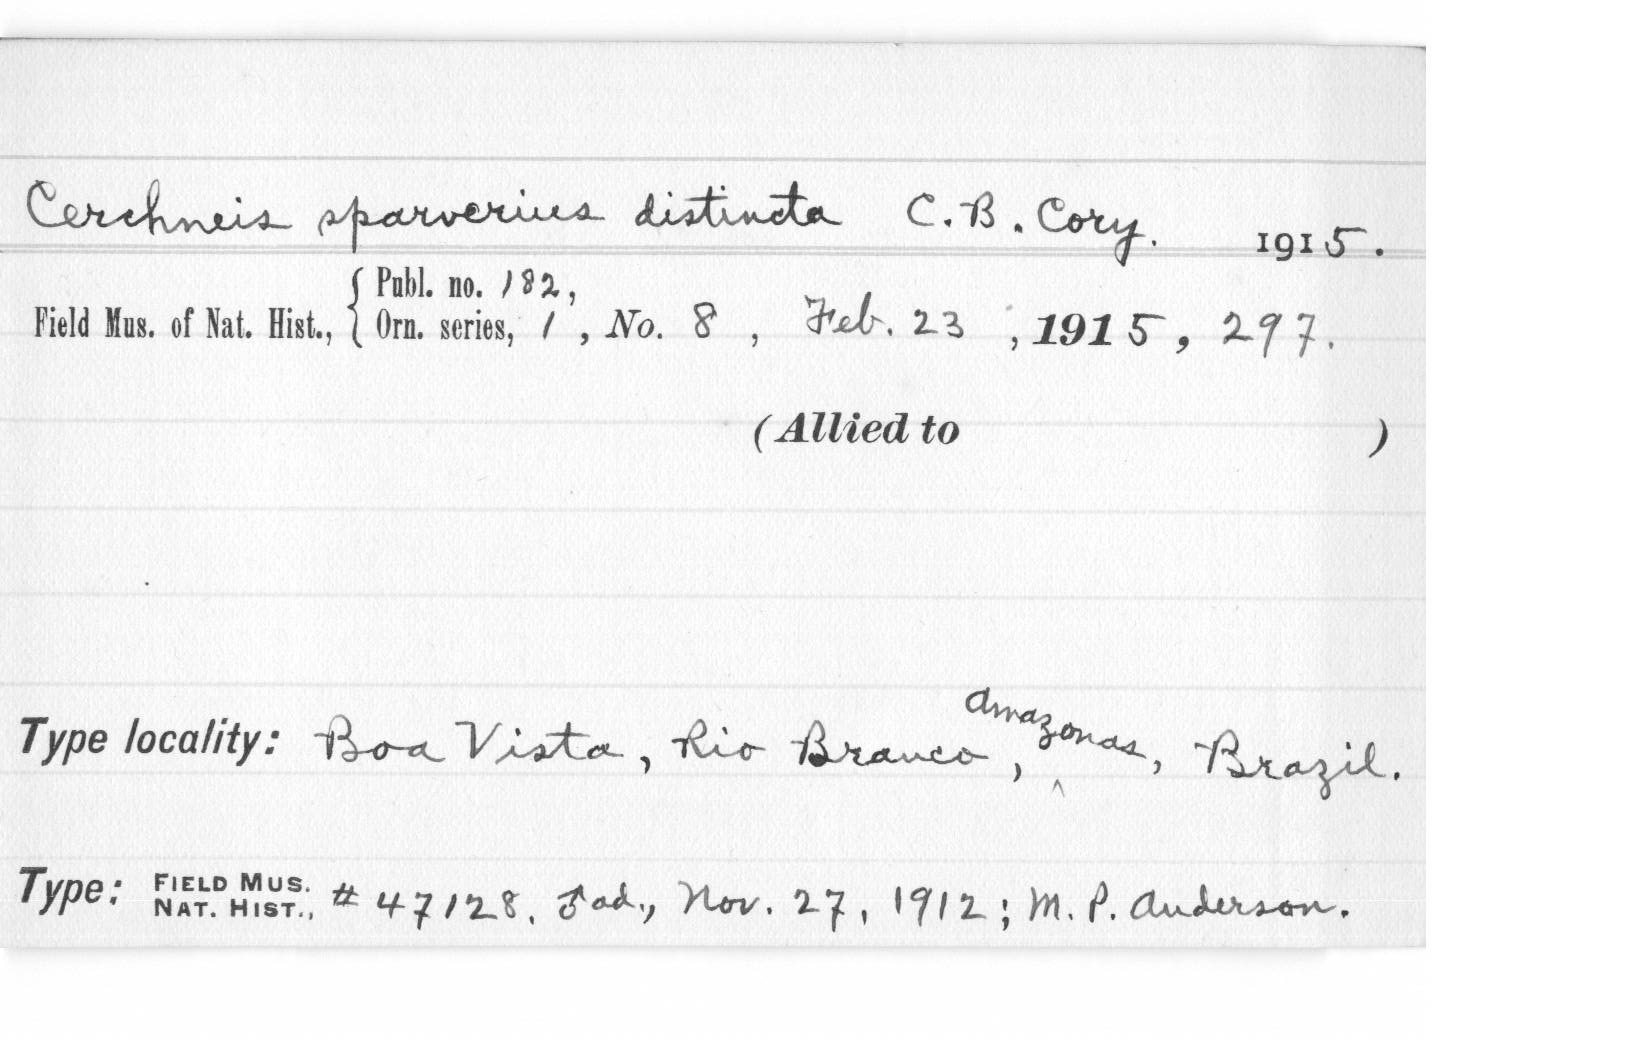 Cerchneis sparverius distincta C. B. Cory. 1915.
Publ. no. 182,
Field Mus. of Nat. Hist., { Orn. series, 1, No. 8, Feb. 23, 1915, 297.
(Allied to )
Type locality: Boa Vista, Rio Branco, Amazonas, Brazil.
Type: FIELD MUS. NAT. HIST., # 47128, ♂ ad., Nov. 27, 1912; M. P. Anderson.